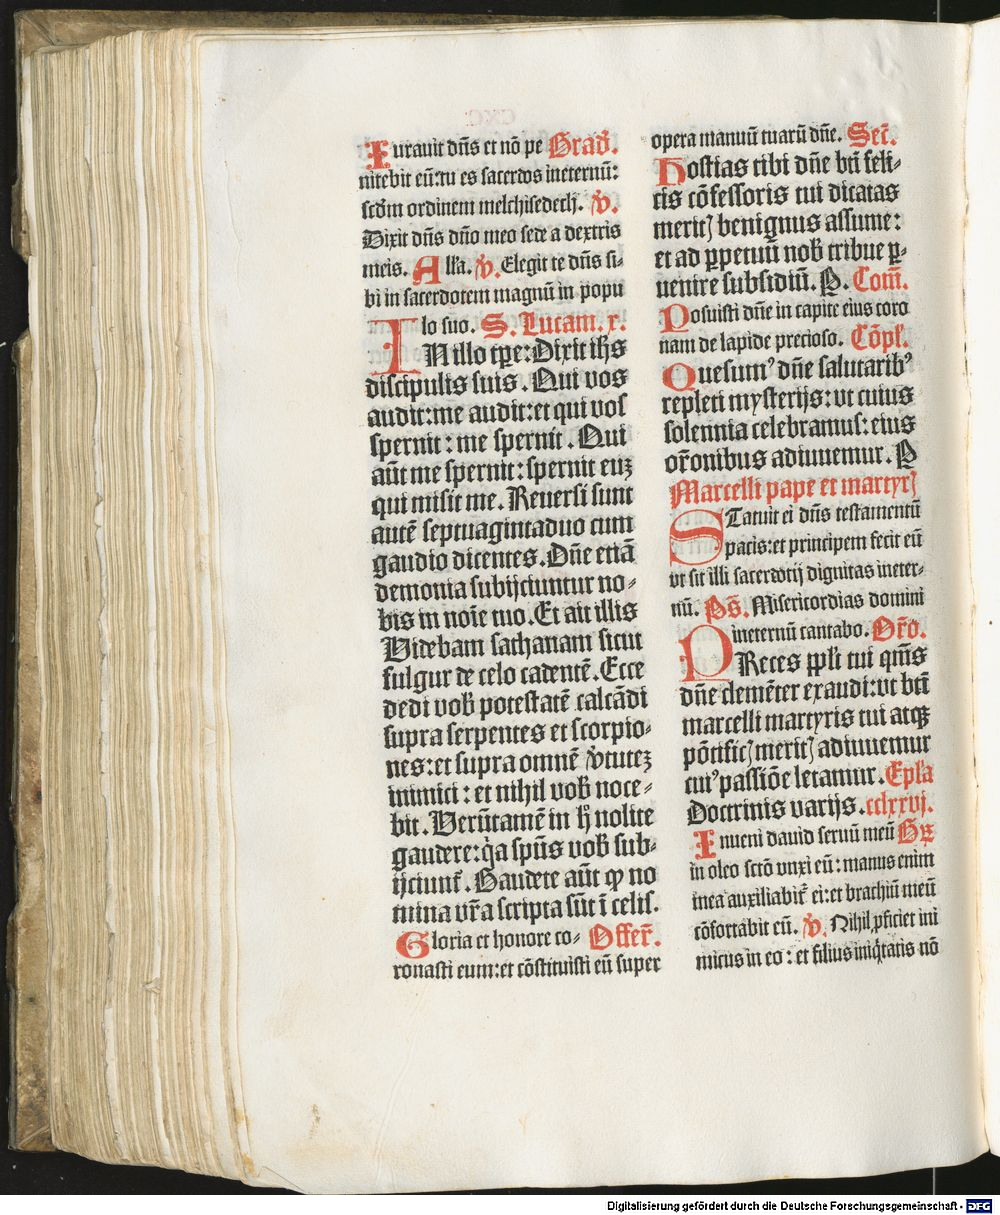 Iurauit dñs et nõ pe Grad̃.
nitebit eũ: tu es sacerdos ineternũ:
scd̃m ordinem melchisedech. ℣.
Dixit dñs dño meo sede a dextris
meis. Alľa. ℣. Elegit te dñs si-
bi in sacerdotem magnũ in popu
lo suo. S. Lucam. x.
IN illo tp̃e: Dixit ihs
discipulis suis. Qui vos
audit: me audit: et qui vos
spernit: me spernit. Qui
aũt me spernit: spernit euꝫ
qui misit me. Reuersi sunt
autẽ septuagintaduo cum
gaudio dicentes. Dñe etiã
demonia subijciuntur no-
bis in noĩe tuo. Et ait illis
Videbam sathanam sicut
fulgur de celo cadentẽ. Ecce
dedi vob̃ potestatẽ calcãdi
supra serpentes et scorpio-
nes: et supra omnẽ v̾tuteꝫ
inimici: et nihil vob̃ noce-
bit. Verũtamẽ in h̾ nolite
gaudere: q̾a sp̃us vob̃ sub-
ijciunt̃. Gaudete aũt ꝙ no
mina vr̃a scripta sũt ĩ celis.
Gloria et honore co- Offer̃.
ronasti eum: et cõstituisti eũ super
opera manuũ tuarũ dñe. Secr̃.
Hostias tibi dñe bt̃i feli-
cis cõfessoris tui dicatas
meritꝭ benignus assume:
et ad ꝑpetuũ nob̃ tribue ꝑ-
uenire subsidiũ. P. Com̃.
Posuisti dñe in capite eius coro
nam de lapide precioso. Cõpľ.
Quesumꝰ dñe salutaribꝰ
repleti mysterijs: vt cuius
solennia celebramus: eius
or̃onibus adiuuemur. P
Marcelli pape et martyrꝭ
STatuit ei dñs testamentũ
pacis: et principem fecit eũ
vt sit illi sacerdotij dignitas ineter-
nũ. Ps̃. Misericordias domini
ineternũ cantabo. Or̃o.
PReces ppľi tui qm̃s
dñe clemẽter exaudi: vt bt̃i
marcelli martyris tui atqꝫ
põtificꝭ meritꝭ adiuuemur
cuiꝰ passiõe letamur. Epľa
Doctrinis varijs. cclxxvj.
Inueni dauid seruũ meũ Gꝛ̃
in oleo sctõ vnxi eũ: manus enim
mea auxiliabit̃ ei: et brachiũ meũ
cõfortabit eũ. ℣. Nihil ꝓficiet ini
micus in eo: et filius iniq̾tatis nõ
Digitalisierung gefördert durch die Deutsche Forschungsgemeinschaft - DFG